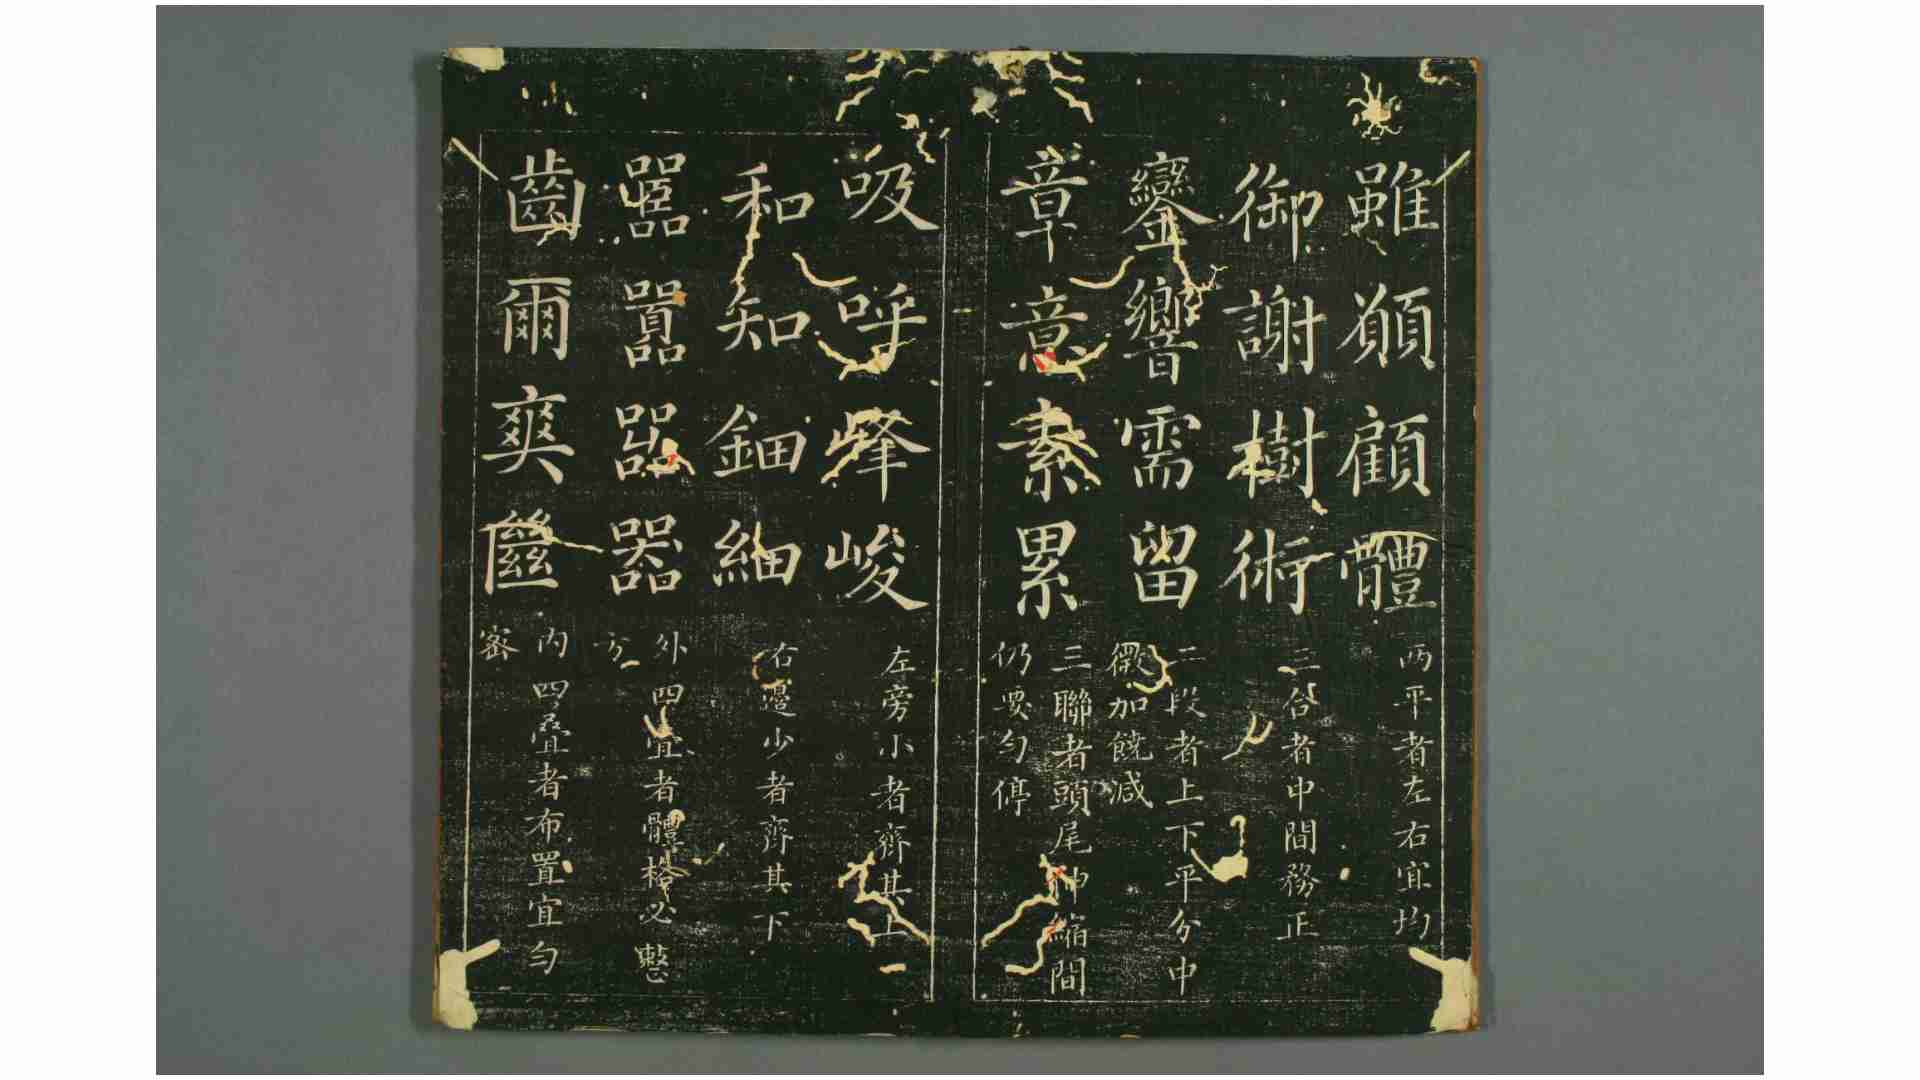 雖願顧體
兩平者左右宜均
御謝樹術
三合者中間務正
鑾響需留
二段者上下平分中
微加饒減
章意素累
三聯者頭尾伸縮間
仍要勻停
吸呼峰峻
左旁小者齊其上
和知鈿細
右邊少者齊其下
嚚囂嘂器
外四宜者體格必整
方
齒爾爽
內四疊者布置宜勻
密